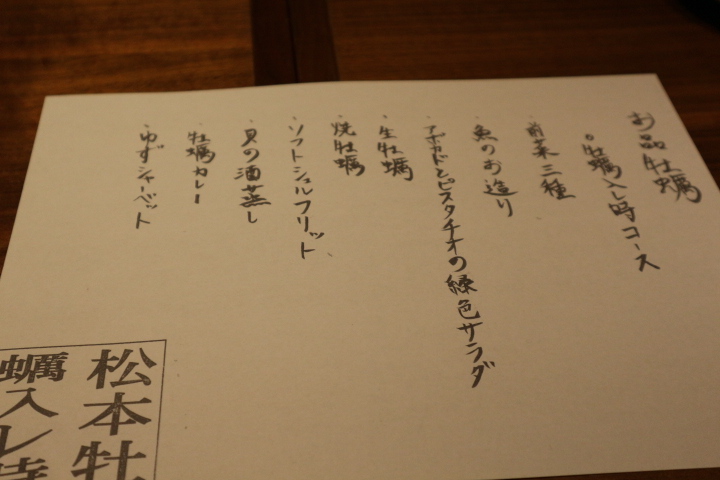 お品牡蠣
。牡蠣入レ時コース
・前菜三種
・魚のお造り
・アボカドとピスタチオの緑色サラダ
・生牡蠣
・焼牡蠣
・ソフトシェルフリット
・貝の酒蒸し
・牡蠣カレー
・ゆずシャーベット
松本牡
蠣入レ時